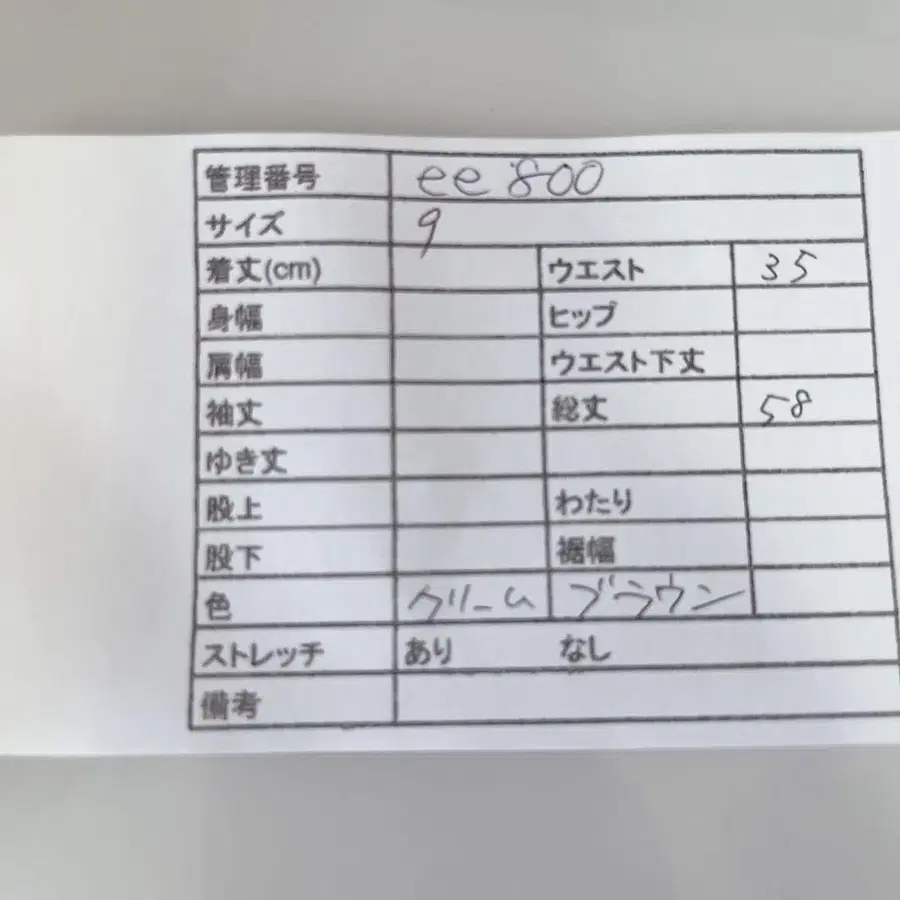 管理番号 ee 800
サイズ 9
着丈(cm) ウエスト 35
身幅 ヒップ
肩幅 ウエスト下丈
袖丈 総丈 58
ゆき丈
股上 わたり
股下 裾幅
色 クリーム ブラウン
ストレッチ あり なし
備考